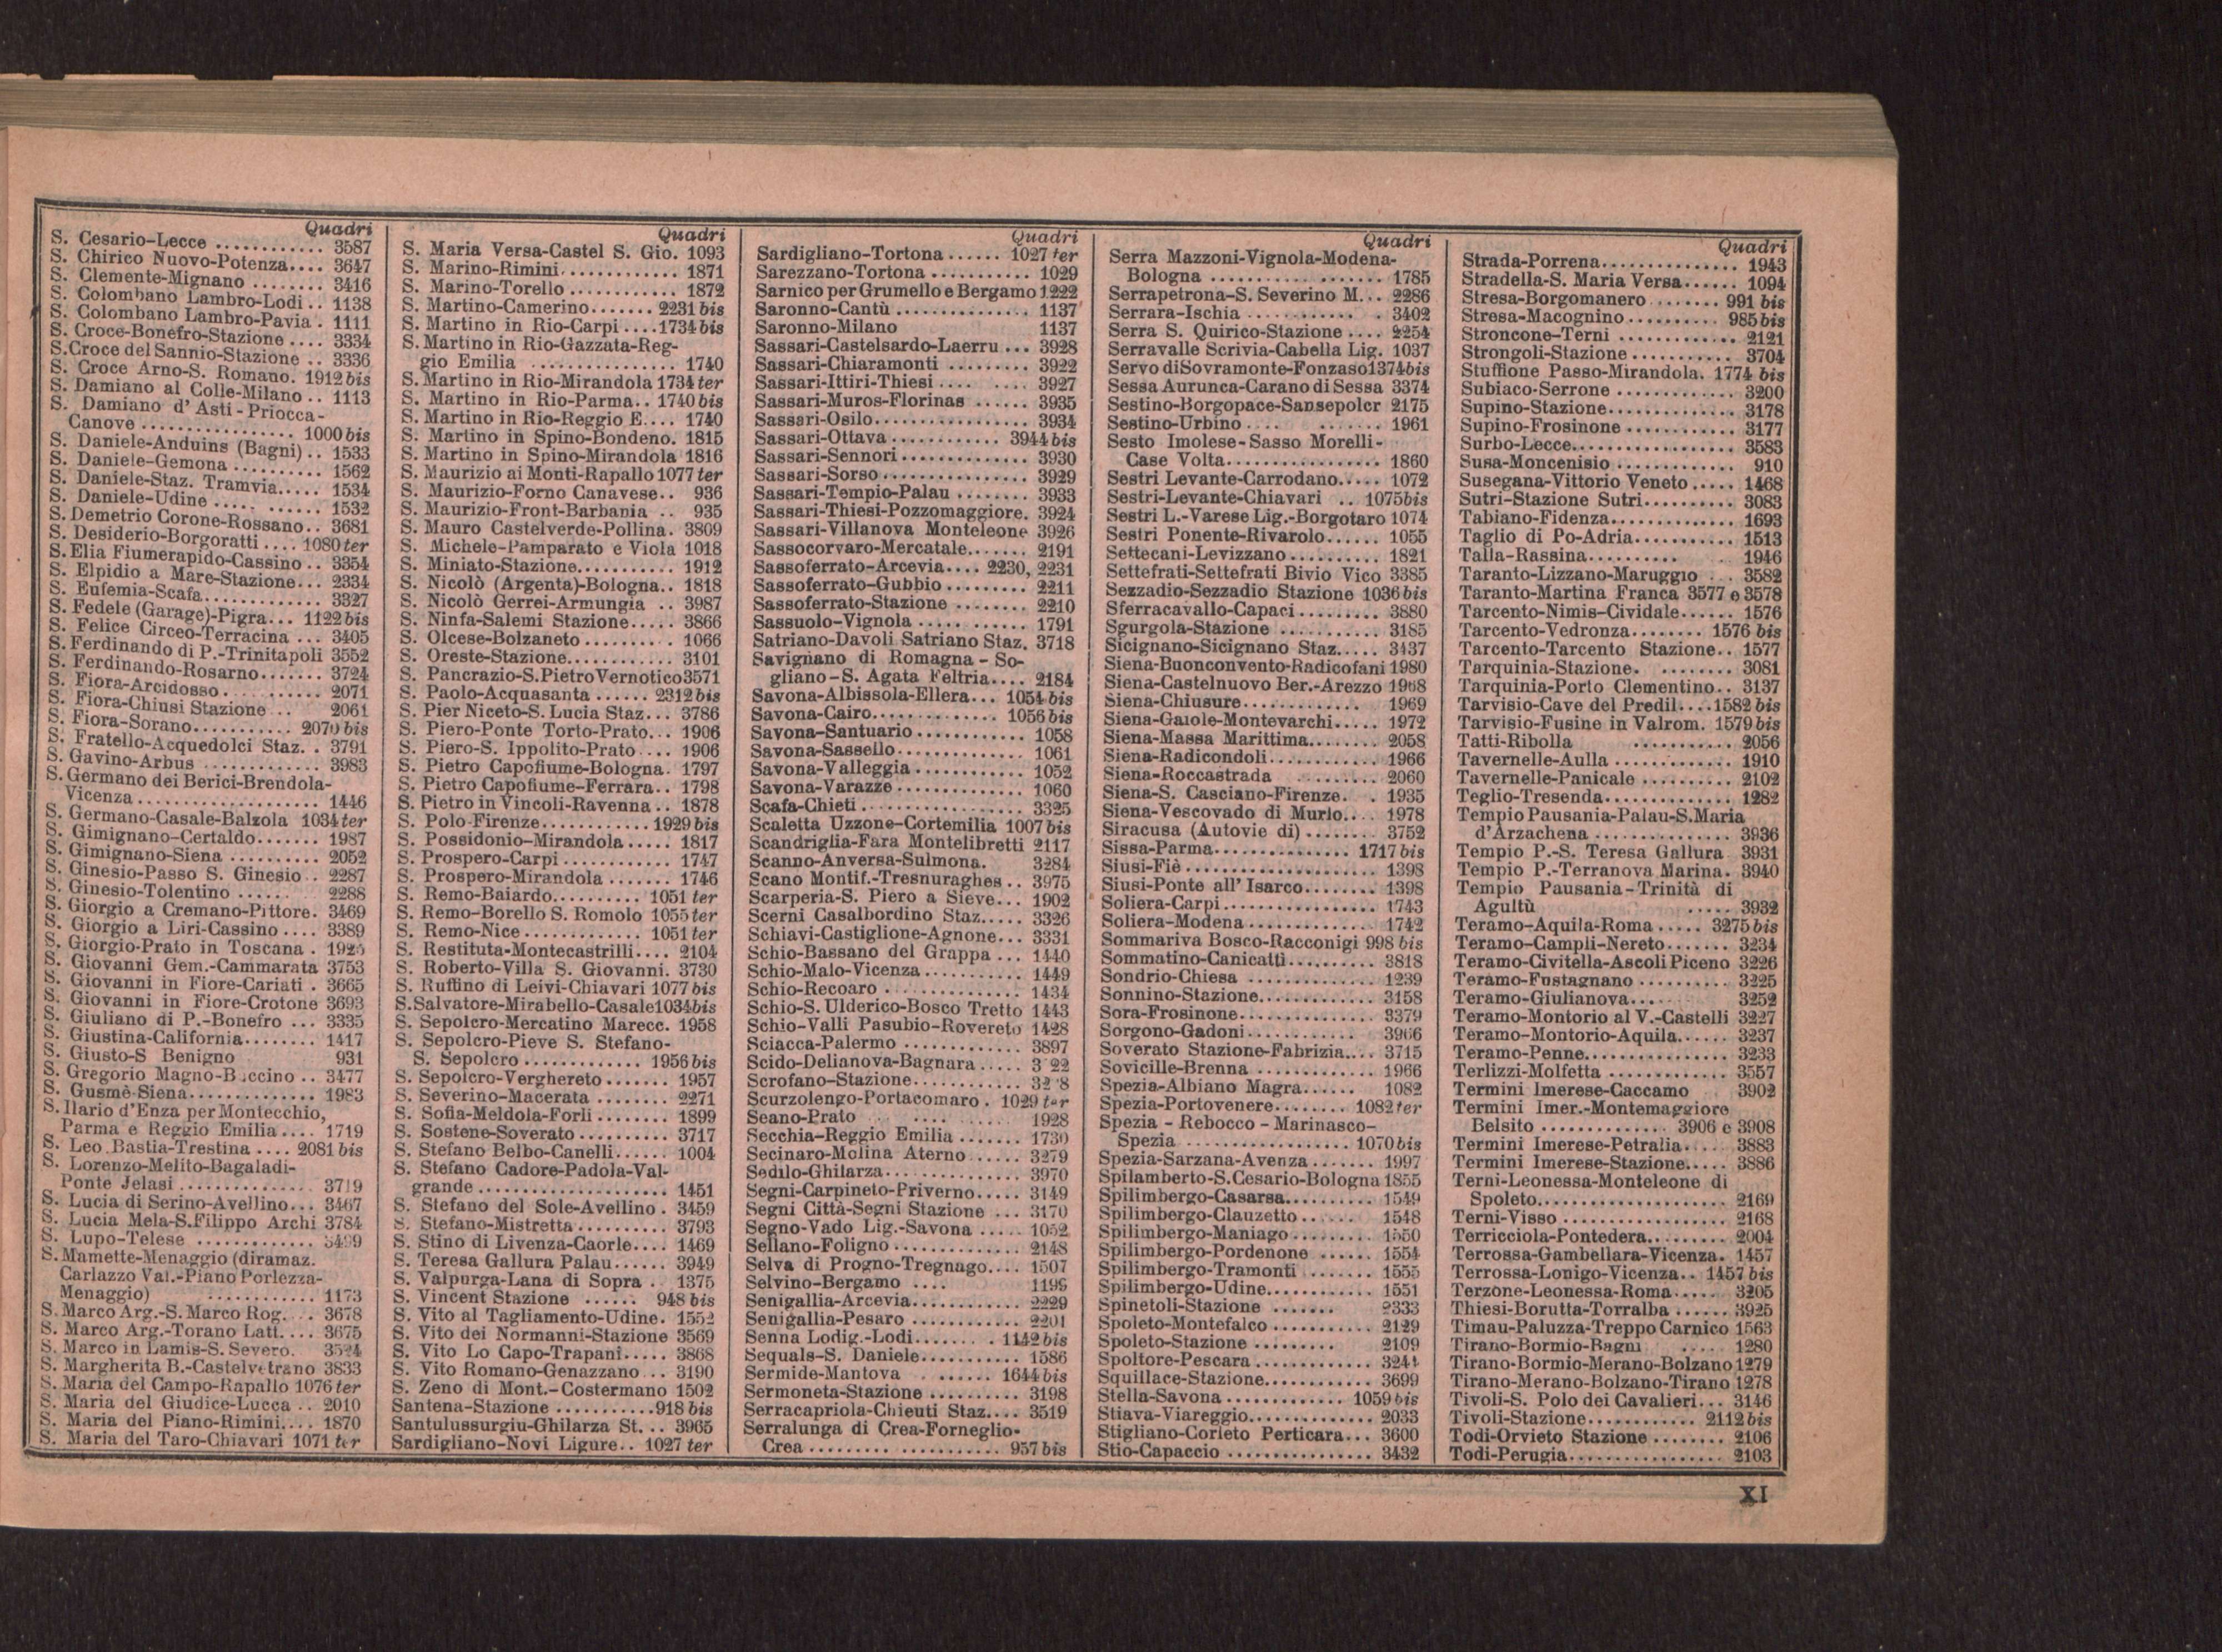 Quadri
S. Cesario-Lecce ............ 3587
S. Chirico Nuovo-Potenza.... 3647
S. Clemente-Mignano ........ 3416
S. Colombano Lambro-Lodi .. 1138
S. Colombano Lambro-Pavia . 1111
S. Croce-Bonefro-Stazione .... 3334
S.Croce del Sannio-Stazione .. 3336
S. Croce Arno-S. Romano. 1912 bis
S. Damiano al Colle-Milano .. 1113
S. Damiano d'Asti-Priocca-
Canove ................ 1000 bis
S. Daniele-Anduins (Bagni) .. 1533
S. Daniele-Gemona .......... 1562
S. Daniele-Staz. Tramvia..... 1534
S. Daniele-Udine ..... ...... 1532
S. Demetrio Corone-Rossano.. 3681
S. Desiderio-Borgoratti .... 1080 ter
S. Elia Fiumerapido-Cassino .. 3354
S. Elpidio a Mare-Stazione... 2334
S. Eufemia-Scafa............. 3327
S. Fedele (Garage)-Pigra... 1122 bis
S. Felice Circeo-Terracina ... 3405
S. Ferdinando di P.-Trinitapoli 3552
S. Ferdinando-Rosarno....... 3724
S. Fiora-Arcidosso. ......... 2071
S. Fiora-Chiusi Stazione .. 2061
S. Fiora-Sorano........... 2070 bis
S. Fratello-Acquedolci Staz. . 3791
S. Gavino-Arbus ............. 3983
S. Germano dei Berici-Brendola-
Vicenza .................... 1446
S. Germano-Casale-Balzola 1034 ter
S. Gimignano-Certaldo....... 1987
S. Gimignano-Siena .......... 2052
S. Ginesio-Passo S. Ginesio .. 2287
S. Ginesio-Tolentino ...... 2288
S. Giorgio a Cremano-Pittore. 3469
S. Giorgio a Liri-Cassino .... 3389
S. Giorgio-Prato in Toscana .
S. Giovanni Gem.-Cammarata 3753
S. Giovanni in Fiore-Cariati . 3665
S. Giovanni in Fiore-Crotone 3693
S. Giuliano di P.-Bonefro ... 3335
S. Giustina-California........ 1417
S. Giusto-S Benigno 931
S. Gregorio Magno-B ccino .. 3477
S. Gusmè-Siena.............. 1983
S. Ilario d'Enza per Montecchio,
Parma e Reggio Emilia .... 1719
S. Leo Bastia-Trestina .... 2081 bis
S. Lorenzo-Melito-Bagaladi-
Ponte Jelasi ............... 3719
S. Lucia di Serino-Avellino... 3467
S. Lucia Mela-S.Filippo Archi 3784
S. Lupo-Telese .............
S. Mamette-Menaggio (diramaz.
Carlazzo Val.-Piano Porlezza-
Menaggio) ............ 1173
S. Marco Arg.-S. Marco Rog. .. 3678
S. Marco Arg.-Torano Latt. ... 3675
S. Marco in Lamis-S. Severo.
S. Margherita B.-Castelvetrano 3833
S. Maria del Campo-Rapallo 1076 ter
S. Maria del Giudice-Lucca .. 2010
S. Maria del Piano-Rimini.... 1870
S. Maria del Taro-Chiavari 1071 ter
Quadri
S. Maria Versa-Castel S. Gio. 1093
S. Marino-Rimini............ 1871
S. Marino-Torello ............ 1872
S. Martino-Camerino....... 2231 bis
S. Martino in Rio-Carpi ....1734 bis
S. Martino in Rio-Gazzata-Reg-
gio Emilia ................ 1740
S. Martino in Rio-Mirandola 1734 ter
S. Martino in Rio-Parma.. 1740 bis
S. Martino in Rio-Reggio E.... 1740
S. Martino in Spino-Bondeno. 1815
S. Martino in Spino-Mirandola 1816
S. Maurizio ai Monti-Rapallo 1077 ter
S. Maurizio-Forno Canavese.. 936
S. Maurizio-Front-Barbania .. 935
S. Mauro Castelverde-Pollina. 3809
S. Michele-Pamparato e Viola 1018
S. Miniato-Stazione.......... 1912
S. Nicolò (Argenta)-Bologna.. 1818
S. Nicolò Gerrei-Armungia .. 3987
S. Ninfa-Salemi Stazione..... 3866
S. Olcese-Bolzaneto .......... 1066
S. Oreste-Stazione............ 3101
S. Pancrazio-S.Pietro Vernotico 3571
S. Paolo-Acquasanta ...... 2312 bis
S. Pier Niceto-S. Lucia Staz... 3786
S. Piero-Ponte Torto-Prato... 1906
S. Piero-S. Ippolito-Prato .... 1906
S. Pietro Capofiume-Bologna. 1797
S. Pietro Capofiume-Ferrara.. 1798
S. Pietro in Vincoli-Ravenna .. 1878
S. Polo-Firenze............ 1929 bis
S. Possidonio-Mirandola ..... 1817
S. Prospero-Carpi ............ 1747
S. Prospero-Mirandola ....... 1746
S. Remo-Baiardo.......... 1051 ter
S. Remo-Borello S. Romolo 1055 ter
S. Remo-Nice ............. 1051 ter
S. Restituta-Montecastrilli.... 2104
S. Roberto-Villa S. Giovanni. 3730
S. Ruffino di Leivi-Chiavari 1077 bis
S.Salvatore-Mirabello-Casale 1034 bis
S. Sepolcro-Mercatino Marecc. 1958
S. Sepolcro-Pieve S. Stefano-
S. Sepolcro ............ 1956 bis
S. Sepolcro-Verghereto ....... 1957
S. Severino-Macerata ........ 2271
S. Sofia-Meldola-Forlì ........ 1899
S. Sostene-Soverato .......... 3717
S. Stefano Belbo-Canelli...... 1004
S. Stefano Cadore-Padola-Val-
grande ..................... 1451
S. Stefano del Sole-Avellino . 3459
S. Stefano-Mistretta.......... 3793
S. Stino di Livenza-Caorle.... 1469
S. Teresa Gallura Palau...... 3949
S. Valpurga-Lana di Sopra .. 1375
S. Vincent Stazione ...... 948 bis
S. Vito al Tagliamento-Udine. 1552
S. Vito dei Normanni-Stazione 3569
S. Vito Lo Capo-Trapani..... 3868
S. Vito Romano-Genazzano ... 3190
S. Zeno di Mont.-Costermano 1502
Santena-Stazione ........... 918 bis
Santulussurgiu-Ghilarza St. .. 3965
Sardigliano-Novi Ligure.. 1027 ter
Quadri
Sardigliano-Tortona ...... 1027 ter
Sarezzano-Tortona ........... 1029
Sarnico per Grumello e Bergamo 1222
Saronno-Cantù ............... 1137
Saronno-Milano 1137
Sassari-Castelsardo-Laerru ... 3928
Sassari-Chiaramonti ......... 3922
Sassari-Ittiri-Thiesi .... .... 3927
Sassari-Muros-Florinas ...... 3935
Sassari-Osilo................. 3934
Sassari-Ottava ............ 3944 bis
Sassari-Sennori .............. 3930
Sassari-Sorso ................ 3929
Sassari-Tempio-Palau ........ 3933
Sassari-Thiesi-Pozzomaggiore. 3924
Sassari-Villanova Monteleone 3926
Sassocorvaro-Mercatale....... 2191
Sassoferrato-Arcevia.... 2230, 2231
Sassoferrato-Gubbio ......... 2211
Sassoferrato-Stazione ........ 2210
Sassuolo-Vignola ............ 1791
Satriano-Davoli Satriano Staz. 3718
Savignano di Romagna - So-
gliano-S. Agata Feltria.... 2184
Savona-Albissola-Ellera... 1054 bis
Savona-Cairo.............. 1056 bis
Savona-Santuario ............ 1058
Savona-Sassello.............. 1061
Savona-Valleggia ............ 1052
Savona-Varazze .............. 1060
Scafa-Chieti .................. 3325
Scaletta Uzzone-Cortemilia 1007 bis
Scandriglia-Fara Montelibretti 2117
Scanno-Anversa-Sulmona. 3284
Scano Montif.-Tresnuraghes .. 3975
Scarperia-S. Piero a Sieve... 1902
Scerni Casalbordino Staz..... 3326
Schiavi-Castiglione-Agnone... 3331
Schio-Bassano del Grappa ... 1440
Schio-Malo-Vicenza........... 1449
Schio-Recoaro ............... 1434
Schio-S. Ulderico-Bosco Tretto 1443
Schio-Valli Pasubio-Rovereto 1428
Sciacca-Palermo ............. 3897
Scido-Delianova-Bagnara ..... 3 22
Scrofano-Stazione............ 32 8
Scurzolengo-Portacomaro . 1029 ter
Seano-Prato .... ...... 1928
Secchia-Reggio Emilia ....... 1730
Secinaro-Molina Aterno ..... 3279
Sedilo-Ghilarza............... 3970
Segni-Carpineto-Priverno..... 3149
Segni Città-Segni Stazione ... 3170
Segno-Vado Lig.-Savona ..... 1052
Sellano-Foligno .............. 2148
Selva di Progno-Tregnago.... 1507
Selvino-Bergamo ....
Senigallia-Arcevia............ 2229
Senigallia-Pesaro ............ 2201
Senna Lodig.-Lodi....... . 1142 bis
Sequals-S. Daniele........... 1586
Sermide-Mantova ...... 1644 bis
Sermoneta-Stazione .......... 3198
Serracapriola-Chieuti Staz.... 3519
Serralunga di Crea-Forneglio-
Crea ........ ........... 957 bis
Quadri
Serra Mazzoni-Vignola-Modena-
Bologna .................... 1785
Serrapetrona-S. Severino M... 2286
Serrara-Ischia ............ . 3402
Serra S. Quirico-Stazione .... 2254
Serravalle Scrivia-Cabella Lig. 1037
Servo di Sovramonte-Fonzaso 1374 bis
Sessa Aurunca-Carano di Sessa 3374
Sestino-Borgopace-Sansepolcr 2175
Sestino-Urbino .... ....... 1961
Sesto Imolese-Sasso Morelli-
Case Volta................. 1860
Sestri Levante-Carrodano..... 1072
Sestri-Levante-Chiavari .. 1075 bis
Sestri L.-Varese Lig.-Borgotaro 1074
Sestri Ponente-Rivarolo...... 1055
Settecani-Levizzano .......... 1821
Settefrati-Settefrati Bivio Vico 3385
Sezzadio-Sezzadio Stazione 1036 bis
Sferracavallo-Capaci ......... 3880
Sgurgola-Stazione ........... 3185
Sicignano-Sicignano Staz..... 3437
Siena-Buonconvento-Radicofani 1980
Siena-Castelnuovo Ber.-Arezzo 1968
Siena-Chiusure............. 1969
Siena-Gaiole-Montevarchi..... 1972
Siena-Massa Marittima........ 2058
Siena-Radicondoli............ 1966
Siena-Roccastrada ......... 2060
Siena-S. Casciano-Firenze. . 1935
Siena-Vescovado di Murlo.... 1978
Siracusa (Autovie di) ........ 3752
Sissa-Parma............... 1717 bis
Siusi-Fiè .................... 1398
Siusi-Ponte all'Isarco........ 1398
Soliera-Carpi................. 1743
Soliera-Modena .............. 1742
Sommariva Bosco-Racconigi 998 bis
Sommatino-Canicattì.......... 3818
Sondrio-Chiesa .............. 1239
Sonnino-Stazione............. 3158
Sora-Frosinone............... 3379
Sorgono-Gadoni............. 3966
Soverato Stazione-Fabrizia.... 3715
Sovicille-Brenna ............. 1966
Spezia-Albiano Magra...... 1082
Spezia-Portovenere........ 1082 ter
Spezia - Rebocco - Marinasco-
Spezia ................... 1070 bis
Spezia-Sarzana-Avenza ....... 1997
Spilamberto-S.Cesario-Bologna 1855
Spilimbergo-Casarsa.......... 1549
Spilimbergo-Clauzetto ...... 1548
Spilimbergo-Maniago ......... 1550
Spilimbergo-Pordenone ...... 1554
Spilimbergo-Tramonti ....... 1555
Spilimbergo-Udine............ 1551
Spinetoli-Stazione ....... 2333
Spoleto-Montefalco ........... 2129
Spoleto-Stazione ......... 2109
Spoltore-Pescara ............. 3244
Squillace-Stazione............ 3699
Stella-Savona ............. 1059 bis
Stiava-Viareggio.............. 2033
Stigliano-Corleto Perticara... 3600
Stio-Capaccio ................ 3432
Quadri
Strada-Porrena............... 1943
Stradella-S. Maria Versa...... 1094
Stresa-Borgomanero ........ 991 bis
Stresa-Macognino .......... 985 bis
Stroncone-Terni ............. 2121
Strongoli-Stazione ........... 3704
Stuffione Passo-Mirandola. 1774 bis
Subiaco-Serrone ............. 3200
Supino-Stazione.............. 3178
Supino-Frosinone ............ 3177
Surbo-Lecce.................. 3583
Susa-Moncenisio ............. 910
Susegana-Vittorio Veneto ..... 1468
Sutri-Stazione Sutri.......... 3083
Tabiano-Fidenza.............. 1693
Taglio di Po-Adria........... 1513
Talla-Rassina.......... . 1946
Taranto-Lizzano-Maruggio ... 3582
Taranto-Martina Franca 3577 e 3578
Tarcento-Nimis-Cividale...... 1576
Tarcento-Vedronza........ 1576 bis
Tarcento-Tarcento Stazione.. 1577
Tarquinia-Stazione. ........ 3081
Tarquinia-Porto Clementino.. 3137
Tarvisio-Cave del Predil....1582 bis
Tarvisio-Fusine in Valrom. 1579 bis
Tatti-Ribolla ........... 2056
Tavernelle-Aulla ............. 1910
Tavernelle-Panicale .......... 2102
Teglio-Tresenda.............. 1282
Tempio Pausania-Palau-S.Maria
d'Arzachena ............... 3936
Tempio P.-S. Teresa Gallura 3931
Tempio P.-Terranova Marina. 3940
Tempio Pausania-Trinità di
Agultù ..... 3932
Teramo-Aquila-Roma ..... 3275 bis
Teramo-Campli-Nereto....... 3234
Teramo-Civitella-Ascoli Piceno 3226
Teramo-Fustagnano .......... 3225
Teramo-Giulianova... 3252
Teramo-Montorio al V.-Castelli 3227
Teramo-Montorio-Aquila...... 3237
Teramo-Penne................ 3233
Terlizzi-Molfetta ............. 3557
Termini Imerese-Caccamo 3902
Termini Imer.-Montemaggiore
Belsito .............. 3906 e 3908
Termini Imerese-Petralia.... 3883
Termini Imerese-Stazione..... 3886
Terni-Leonessa-Monteleone di
Spoleto..................... 2169
Terni-Visso .................. 2168
Terricciola-Pontedera......... 2004
Terrossa-Gambellara-Vicenza. 1457
Terrossa-Lonigo-Vicenza.. 1457 bis
Terzone-Leonessa-Roma..... 3205
Thiesi-Borutta-Torralba ...... 3925
Timau-Paluzza-Treppo Carnico 1563
Tirano-Bormio-Bagni ..... 1280
Tirano-Bormio-Merano-Bolzano 1279
Tirano-Merano-Bolzano-Tirano 1278
Tivoli-S. Polo dei Cavalieri... 3146
Tivoli-Stazione............ 2112 bis
Todi-Orvieto Stazione ........ 2106
Todi-Perugia................. 2103
XI